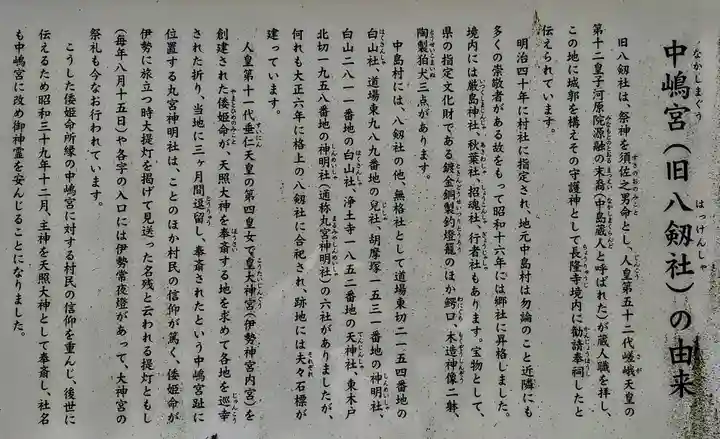 中嶋宮（旧八剱社）の由来
旧八剱社は、祭神を須佐之男命とし、人皇第五十二代嵯峨天皇の
第十二皇子河原院源融の末裔（中島蔵人と呼ばれた）が蔵人職を拝し、
この地に城郭を構えその守護神として長隆寺境内に勧請奉祠したと
伝えられています。
明治四十年に村社に指定され、地元中島村は勿論のこと近隣にも
多くの崇敬者がある故をもって昭和十六年には郷社に昇格しました。
境内には厳島神社、秋葉社、招魂社、行者社もあります。宝物として、
県の指定文化財である鍍金銅製釣燈籠のほか鰐口、木造神像二躰、
陶製狛犬三点があります。
中島村には、八剱社の他、無格社として道場東切二一五四番地の
白山社、道場東九八九番地の兒社、胡摩塚一五三一番地の神明社、
白山二八一一番地の白山社、浄土寺一八五二番地の天神社、東木戸
北切一九五八番地の神明社（通称丸宮神明社）の六社がありましたが、
何れも大正六年に格上の八剱社に合祀され、跡地には夫々石標が
建っています。
人皇第十一代垂仁天皇の第四皇女で皇大神宮（伊勢神宮内宮）を
創建された倭姫命が、天照大神を奉斎する地を求めて各地を巡幸
された折り、当地に三ヶ月間逗留し、奉斎されたという中嶋宮趾に
位置する丸宮神明社は、ことのほか村民の信仰が篤く、倭姫命が
伊勢に旅立つ時大提灯を掲げて見送った名残と云われる提灯ともし
（毎年八月十五日）や各字の入口には伊勢常夜燈があって、大神宮の
祭礼も今なお行われています。
こうした倭姫命所縁の中嶋宮に対する村民の信仰を重んじ、後世に
伝えるため昭和三十九年十二月、主神を天照大神として奉斎し、社名
も中嶋宮に改め御神霊を安んじることになりました。